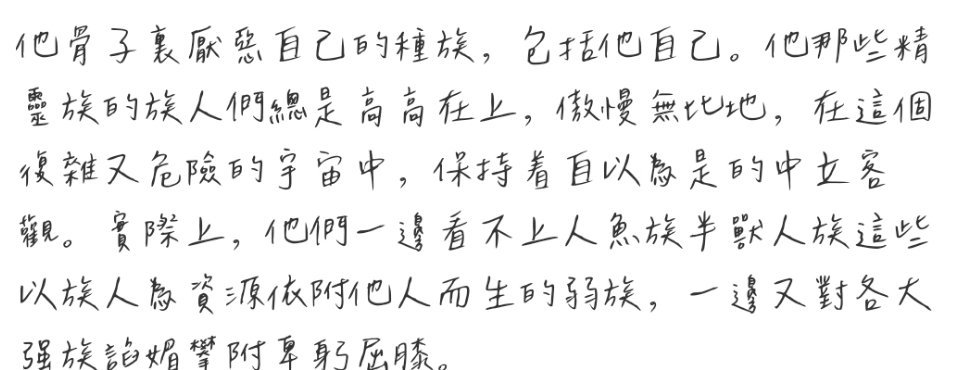 他骨子裏厭惡自己的種族，包括他自己。他那些精
靈族的族人們總是高高在上，傲慢無比地，在這個
復雜又危險的宇宙中，保持着自以為是的中立客
觀。實際上，他們一邊看不上人魚族半獸人族這些
以族人為資源依附他人而生的弱族，一邊又對各大
强族諂媚攀附卑躬屈膝。